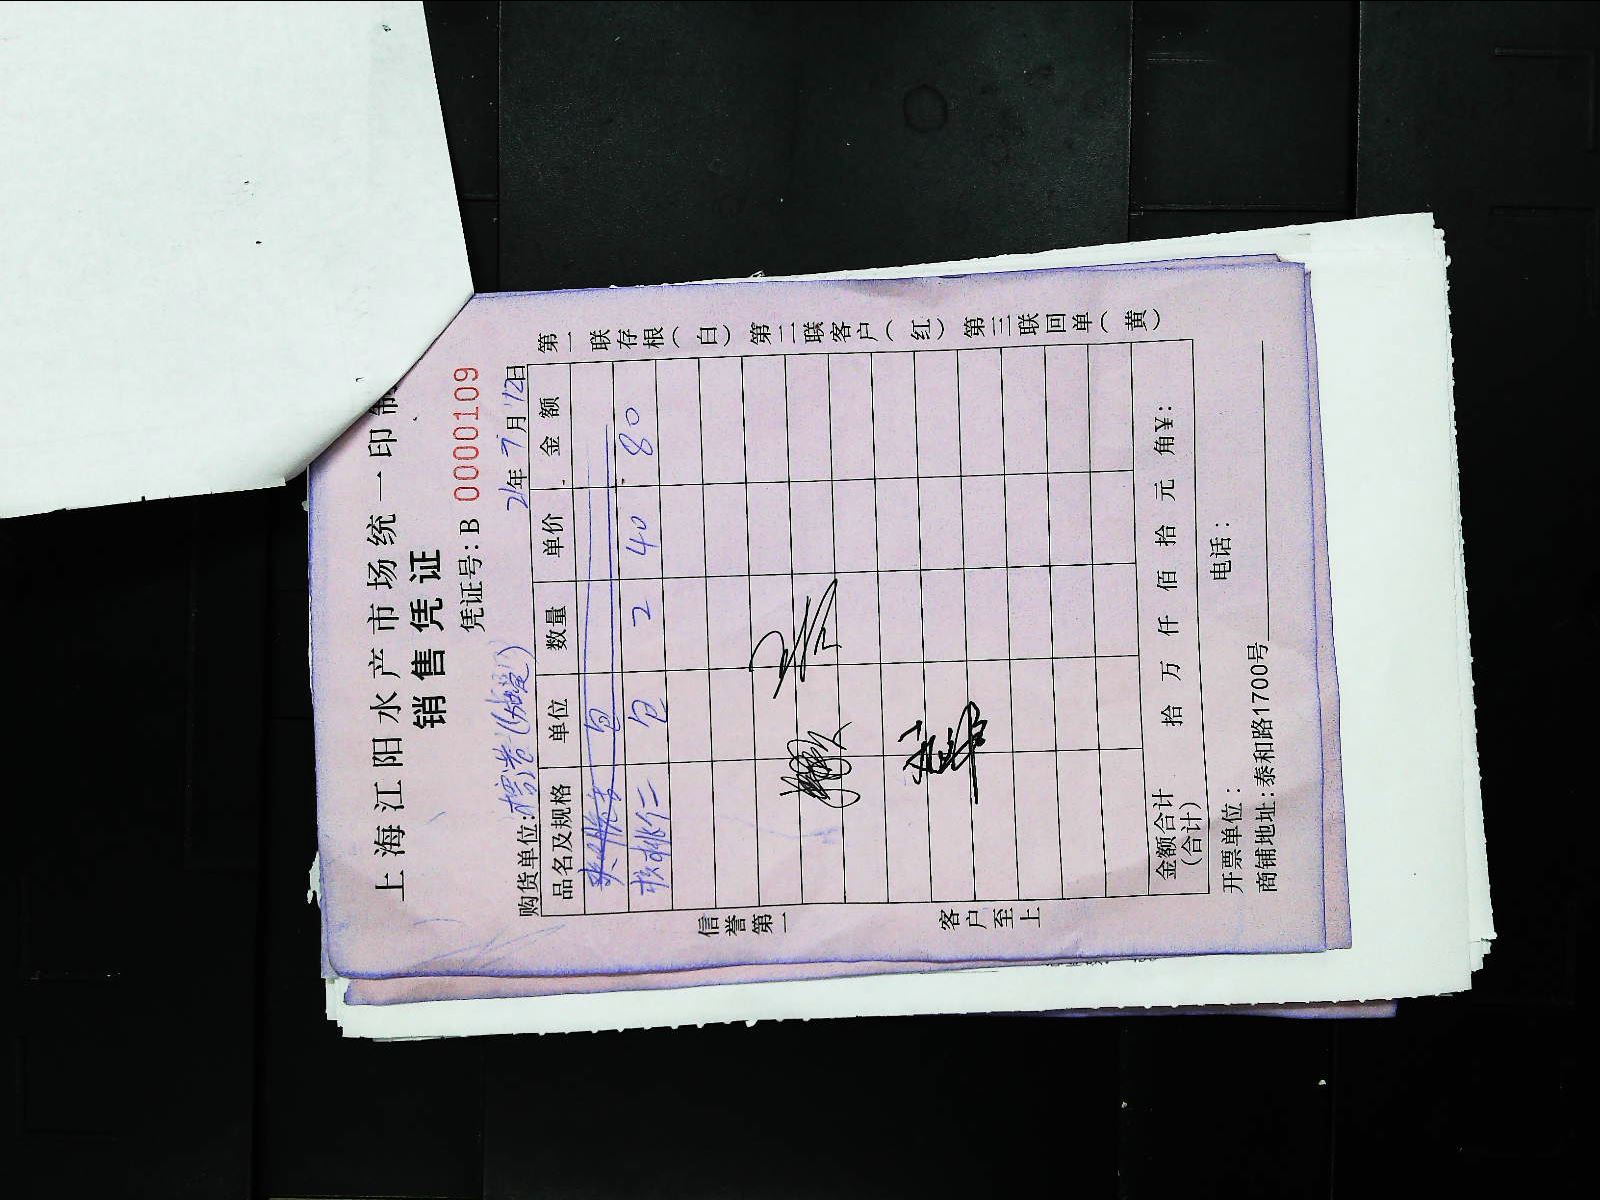 上海江阳水产市场统一印制
销售凭证
凭证号:B 0000109
购货单位:
21年7月12日
品名及规格 单位 数量 单价 金额
包
核桃仁 包 2 40 80
金额合计(合计) 拾 万 仟 佰 拾 元 角¥:
开票单位: 电话:
商铺地址:泰和路1700号
信誉第一 客户至上
第一联存根(白) 第二联客户(红) 第三联回单(黄)